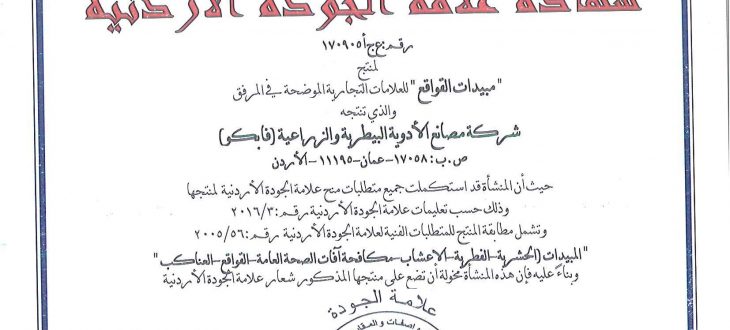 شهادة علامة الجودة الأردنية
رقم: ع ج أ ١٧٠٩٠٥
لمنتج
"مبيدات القواقع" للعلامات التجارية الموضحة في المرفق
والذي تنتجه
شركة مصانع الأدوية البيطرية والزراعية (فابكو)
ص.ب: ١٧٠٥٨-عمان-١١١٩٥-الأردن
حيث أن المنشأة قد استكملت جميع متطلبات منح علامة الجودة الأردنية لمنتجها
وذلك حسب تعليمات علامة الجودة الأردنية رقم: ٢٠١٦/٣
وتشمل مطابقة المنتج للمتطلبات الفنية لعلامة الجودة الأردنية رقم: ٢٠٠٥/٥٦
"المبيدات (الحشرية-الفطرية-الاعشاب-مكافحة آفات الصحة العامة-القواقع-العناكب"
وبناءً عليه فإن هذه المنشأة مخولة أن تضع على منتجها المذكور شعار علامة الجودة الأردنية
علامة الجودة